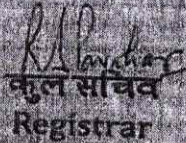 कुल सचिव
Registrar